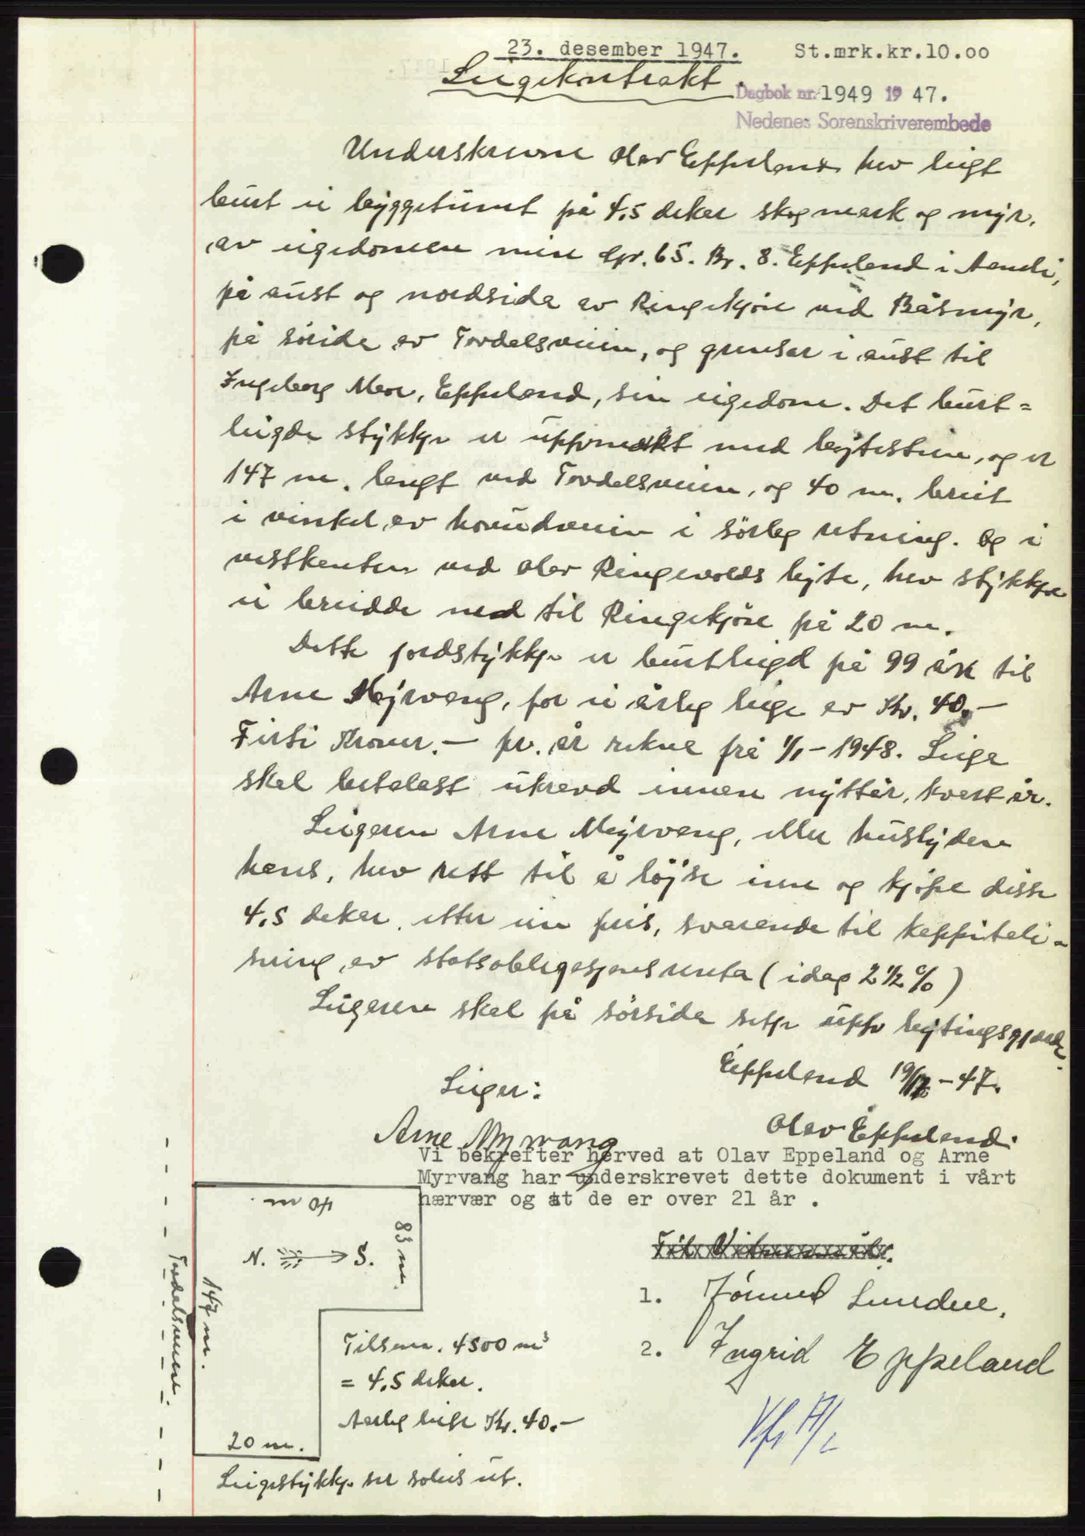 23. desember 1947. St.mrk.kr.10.oo
Leigekontrakt.
Dagbok nr. 1949 19 47.
Nedenes Sorenskriverembede
Underskrivne Olav Eppeland hev leigt
burt ei byggetumt på 4,5 dekar skogmark og myr,
av eigedomen min Gr. 65. Br. 8. Eppeland i Aamli,
på aust og nordsida av Ringekjøn ved Båsmyr,
på sørside av Tovdalsveien, og grensar i aust til
Ingeborg Moe, Eppeland, sin eigedom. Det burt=
leigde stykkje er uppmerkt med bytestein, og er
147 m. langt ved Tovdalsveien, og 40 m. breit
i vinkel av hovudveien i sørleg retning. Og i
vestkanten ved Olav Ringevolds byte, hev stykkje
ei breidde ned til Ringekjøn på 20 m.
Dette jordstykkje er burtleigd på 99 år til
Arne Myrvang, for ei årleg leige av Kr. 40.–
Førti Kroner.– pr. år rekna frå 1/1 – 1948. Leiga
skal betalast ukravd innen nyttår, kvart år.
Leigeren Arne Myrvang, eller huslyden
hans, hev rett til å løyse inn og kjøpe disse
4,5 dekar. etter ein pris, svarande til kappitali-
sering av statsobligasjonsrenta (idag 2 1/2 %)
Leigeren skal på sørsida setje upp bytingsgjerde.
Eppeland 19/12 – 47.
Leiger:
Arne Myrvang
Olav Eppeland.
Vi bekrefter herved at Olav Eppeland og Arne
Myrvang har underskrevet dette dokument i vårt
nærvær og at de er over 21 år .
1. Jørund Lundee.
2. Ingrid Eppeland
40 m.
83 m.
N. S.
147 m.
Tovdalsveien.
20 m.
Tilsam. 4500 m²
= 4,5 dekar.
Aarleg leige Kr. 40.–
Leigestykkje ser soleis ut.